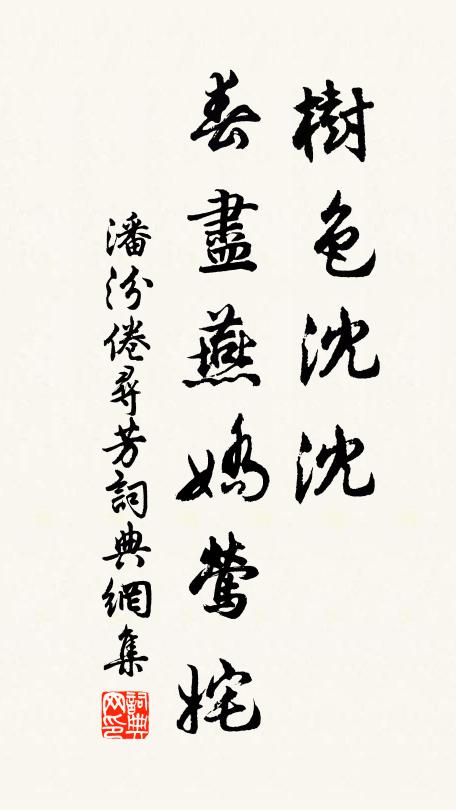 樹色沈沈
春盡燕嬌鶯姹
潘汾倦尋芳詞典網集
詞典網印